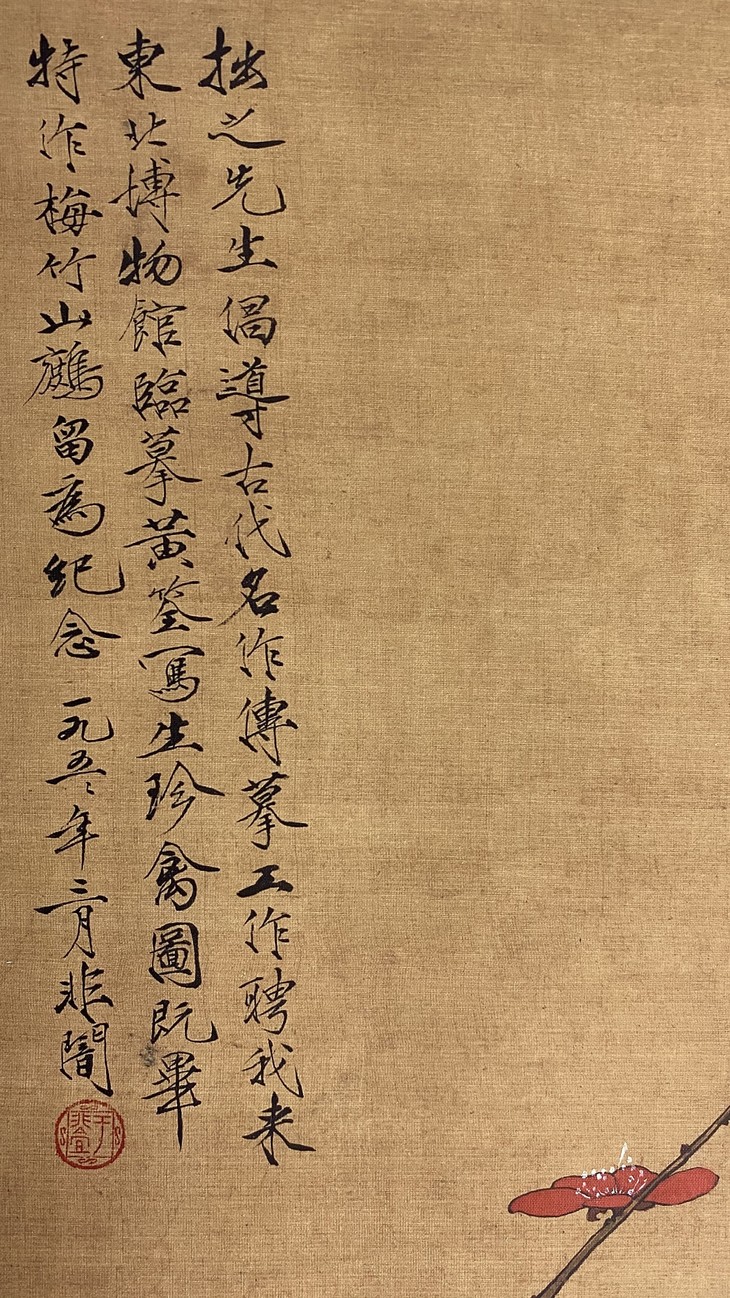 拙之先生倡導古代名作傳摹工作聘我来
東北博物館臨摹黄筌寫生珍禽圖既畢
特作梅竹山鷓留為紀念一九五〻年三月非闇